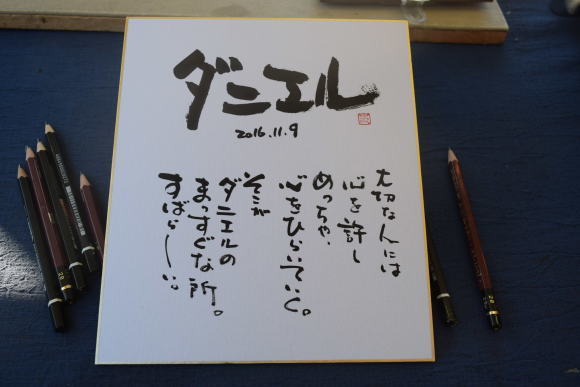 ダニエル
2016.11.9
大切な人には
心を許し
めっちゃ、
心をひらいていく。
そこが
ダニエルの
まっすぐな所。
すばらしい。